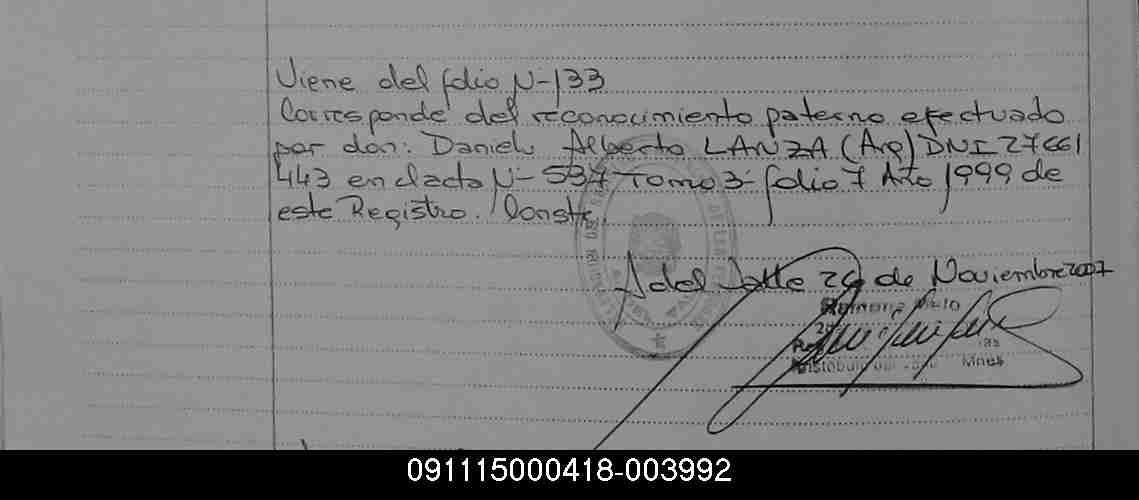 Viene del folio N-133
Corresponde del reconocimiento paterno efectuado
por don: Daniel Alberto LANZA (Arg) DNI 27661
443 en el acta N- 537 Tomo 3- folio 7 Año 1999 de
este Registro. Conste.
A del Valle 26 de Noviembre 2007
Ramona
Aristobulo del Valle Mnes
091115000418-003992